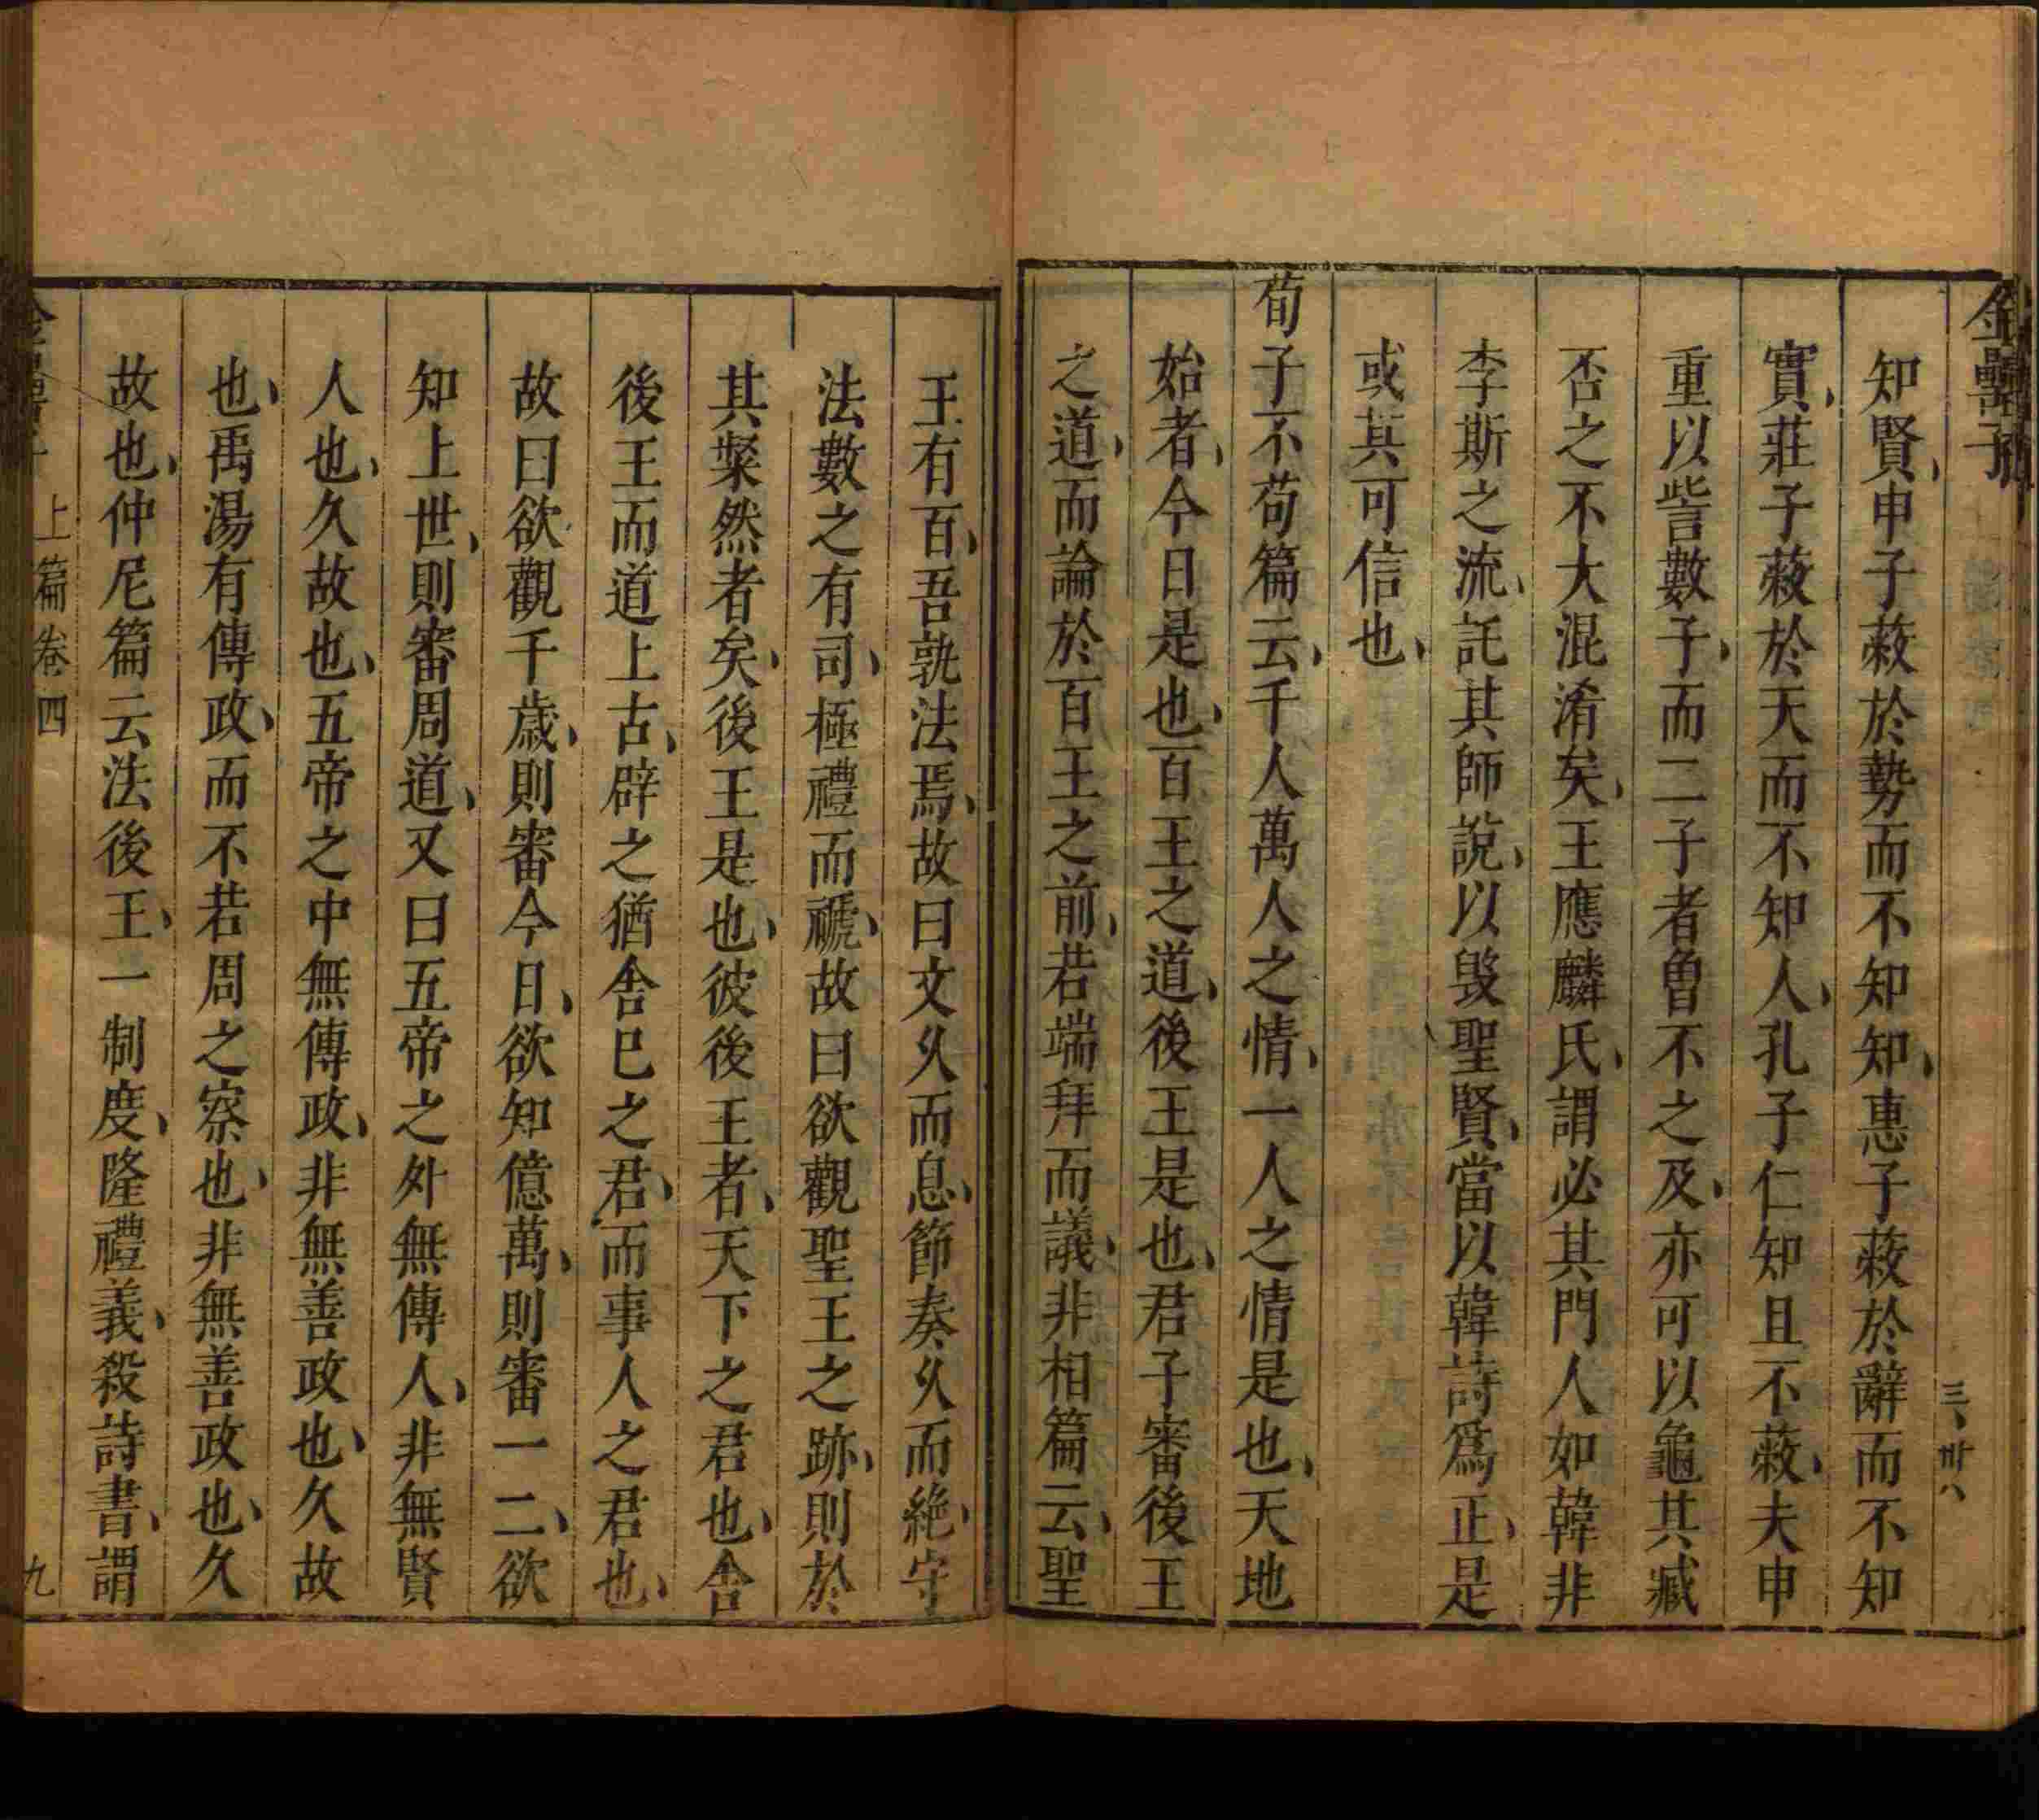 金罍子
三、卅八
知賢、申子蔽於勢而不知知、惠子蔽於辭而不知
實、莊子蔽於天而不知人、孔子仁知且不蔽、夫申
重以訾數子、而二子者曾不之及、亦可以龜其臧
否之不大混淆矣、王應麟氏、謂必其門人如韓非
李斯之流、託其師說、以毀聖賢、當以韓詩爲正、是
或其可信也、
荀子不苟篇云、千人萬人之情、一人之情是也、天地
始者、今日是也、百王之道、後王是也、君子審後王
之道、而論於百王之前、若端拜而議、非相篇云、聖
王有百、吾孰法焉、故曰文久而息、節奏久而絶、守
法數之有司、極禮而褫、故曰欲觀聖王之跡、則於
其粲然者矣、後王是也、彼後王者、天下之君也、舎
後王而道上古、辟之猶舎巳之君、而事人之君也、
故曰欲觀千歲、則審今日、欲知億萬、則審一二、欲
知上世、則審周道、又曰五帝之外無傳人、非無賢
人也、久故也、五帝之中無傳政、非無善政也、久故
也、禹湯有傳政、而不若周之察也、非無善政也、久
故也、仲尼篇云法後王、一制度、隆禮義、殺詩書、謂
上篇卷四
九